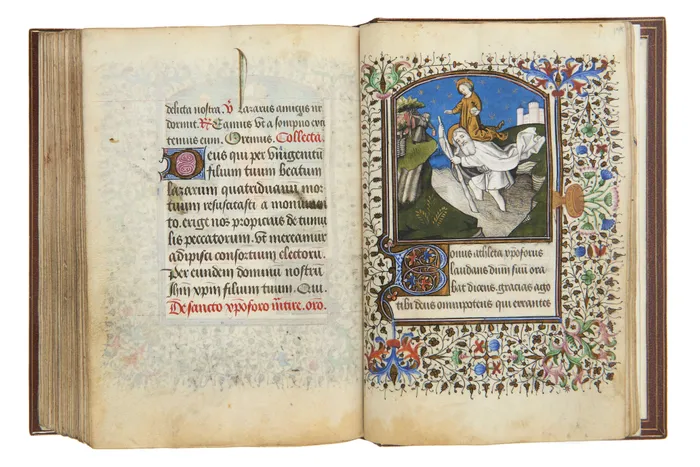 delicta nostra. V̉ Lazarus amicus nr̄
dormit. R̃ Eamus vt a sompno exci
temus eum. Oremus. Collecta.
Deus qui per vnigenitū
filium tuum beatum
lazarum quatriduanū mor
tuum resuscitasti a monumen
to. erige nos propicius de tumu
lis peccatorum. vt mereamur
adipisci consortium electorū.
Per eundem dominū nostrū
Jhm xp̄m filium tuum. Qui.
De sancto xp̄oforo m̄tire. oro.
Bonus athleta xp̄oforus
laudans dum sui ora
bat dicens. gracias ago
tibi deus omnipotens qui errantes